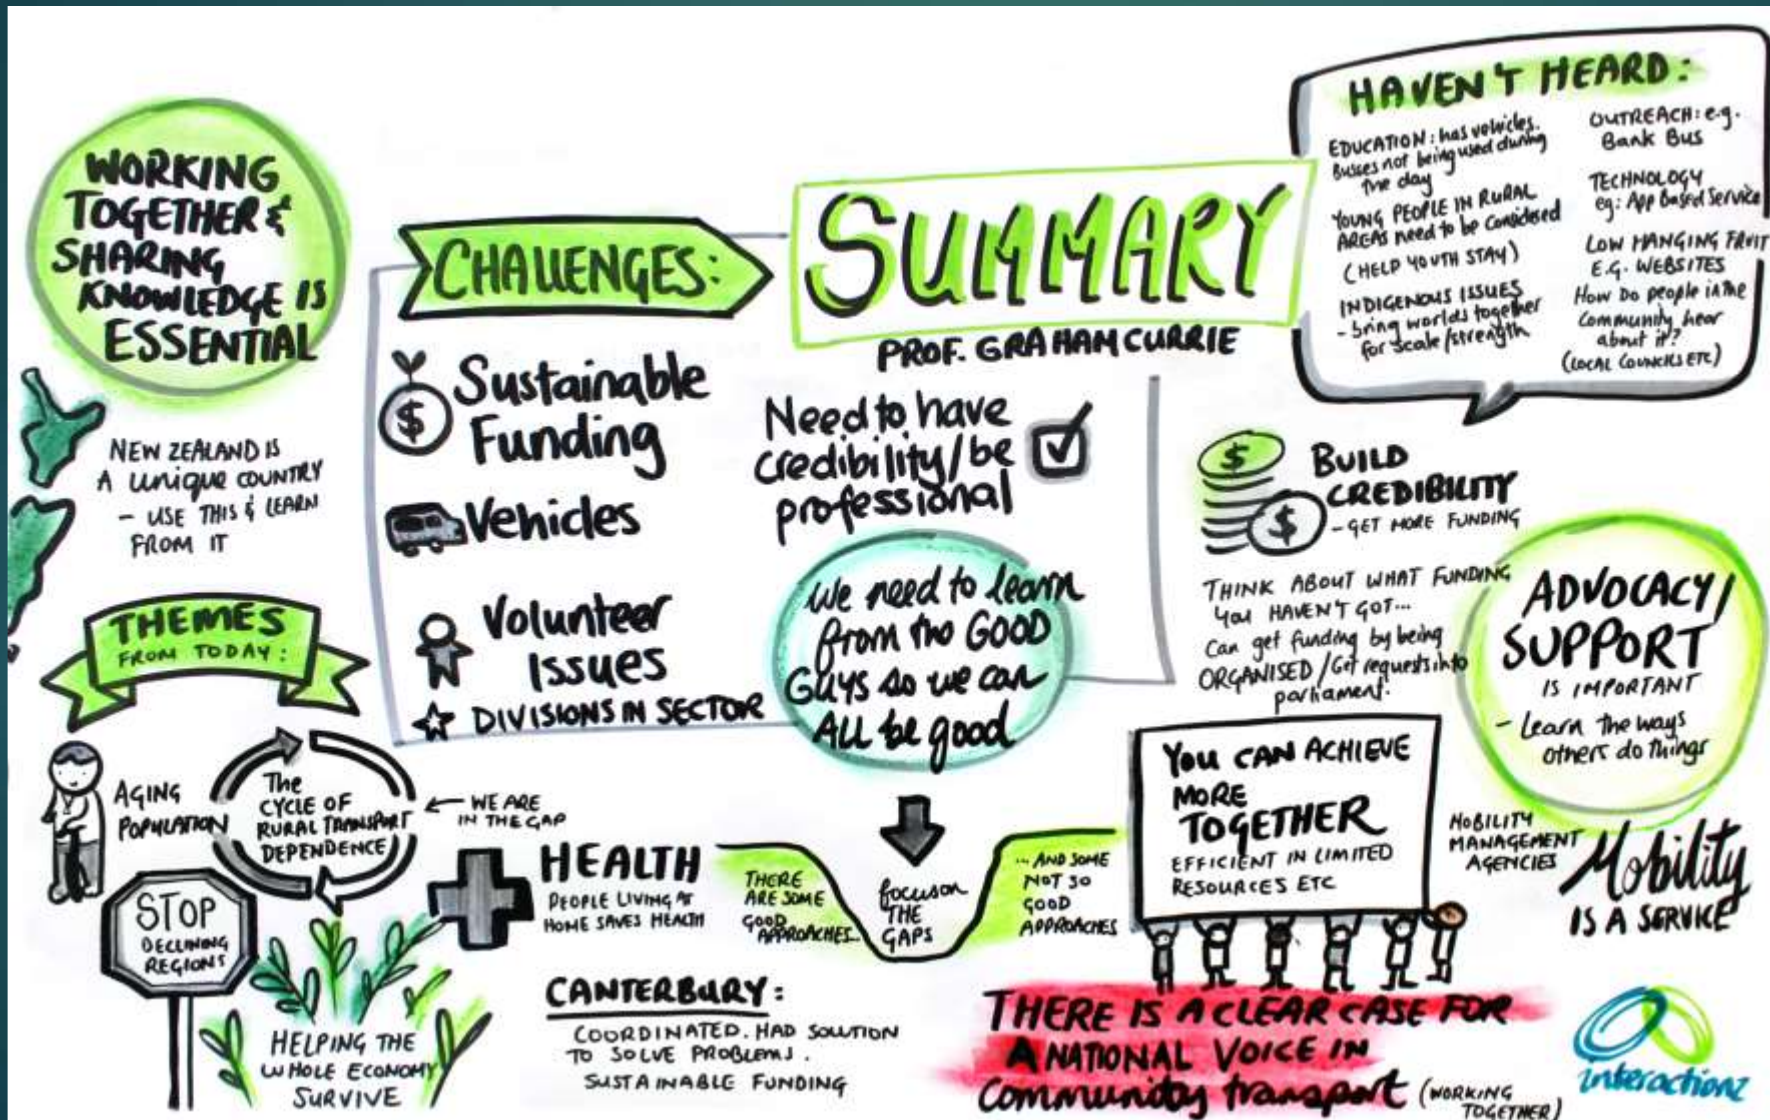 WORKING
TOGETHER &
SHARING
KNOWLEDGE IS
ESSENTIAL
NEW ZEALAND IS
A UNIQUE COUNTRY
- USE THIS & LEARN
FROM IT
THEMES
FROM TODAY:
AGING
POPULATION
The
CYCLE OF
RURAL TRANSPORT
DEPENDENCE
← WE ARE
IN THE GAP
STOP
DECLINING
REGIONS
HELPING THE
WHOLE ECONOMY
SURVIVE
HEALTH
PEOPLE LIVING AT
HOME SAVES HEALTH
CANTERBURY:
COORDINATED. HAD SOLUTION
TO SOLVE PROBLEMS.
SUSTAINABLE FUNDING
CHALLENGES:
$
Sustainable
Funding
Vehicles
Volunteer
Issues
DIVISIONS IN SECTOR
SUMMARY
PROF. GRAHAM CURRIE
Need to have
credibility/be
professional
We need to learn
from the GOOD
GUYS so we can
ALL be good
THERE
ARE SOME
GOOD
APPROACHES...
focus on
THE
GAPS
... AND SOME
NOT SO
GOOD
APPROACHES
HAVEN'T HEARD:
EDUCATION: has vehicles.
Busses not being used during
the day
YOUNG PEOPLE IN RURAL
AREAS need to be considered
(HELP YOUTH STAY)
INDIGENOUS ISSUES
- bring worlds together
for scale/strength
OUTREACH: e.g.
Bank Bus
TECHNOLOGY
eg: App Based Service
LOW HANGING FRUIT
E.G. WEBSITES
How Do people in the
Community hear
about it?
(LOCAL COUNCILS ETC)
$
$
BUILD
CREDIBILITY
- GET MORE FUNDING
THINK ABOUT WHAT FUNDING
YOU HAVEN'T GOT...
Can get funding by being
ORGANISED / Get requests into
parliament.
ADVOCACY/
SUPPORT
IS IMPORTANT
- Learn the ways
others do things
YOU CAN ACHIEVE
MORE
TOGETHER
EFFICIENT IN LIMITED
RESOURCES ETC
MOBILITY
MANAGEMENT
AGENCIES
Mobility
IS A SERVICE
THERE IS A CLEAR CASE FOR
A NATIONAL VOICE IN
Community transport (WORKING
TOGETHER)
interactionz